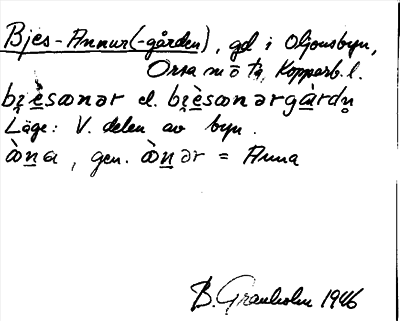 Bjes-Annur(-gården), gd i Oljonsbyn,
Orsa sn o tg, Kopparb. l.
bi̯è̱sɷnər el. bi̯èsɷnərgà̱rdn̥
Läge: V. delen av byn.
ɷ̀n̲a, gen. ɷ̀n̲ər = Anna
B. Granholm 1946